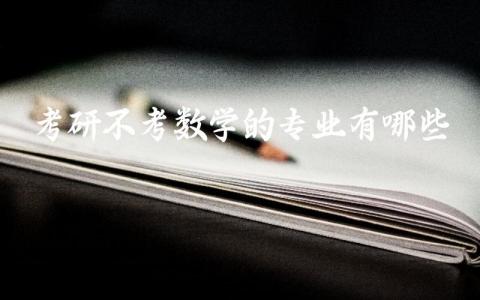 考研不考数学的专业有哪些